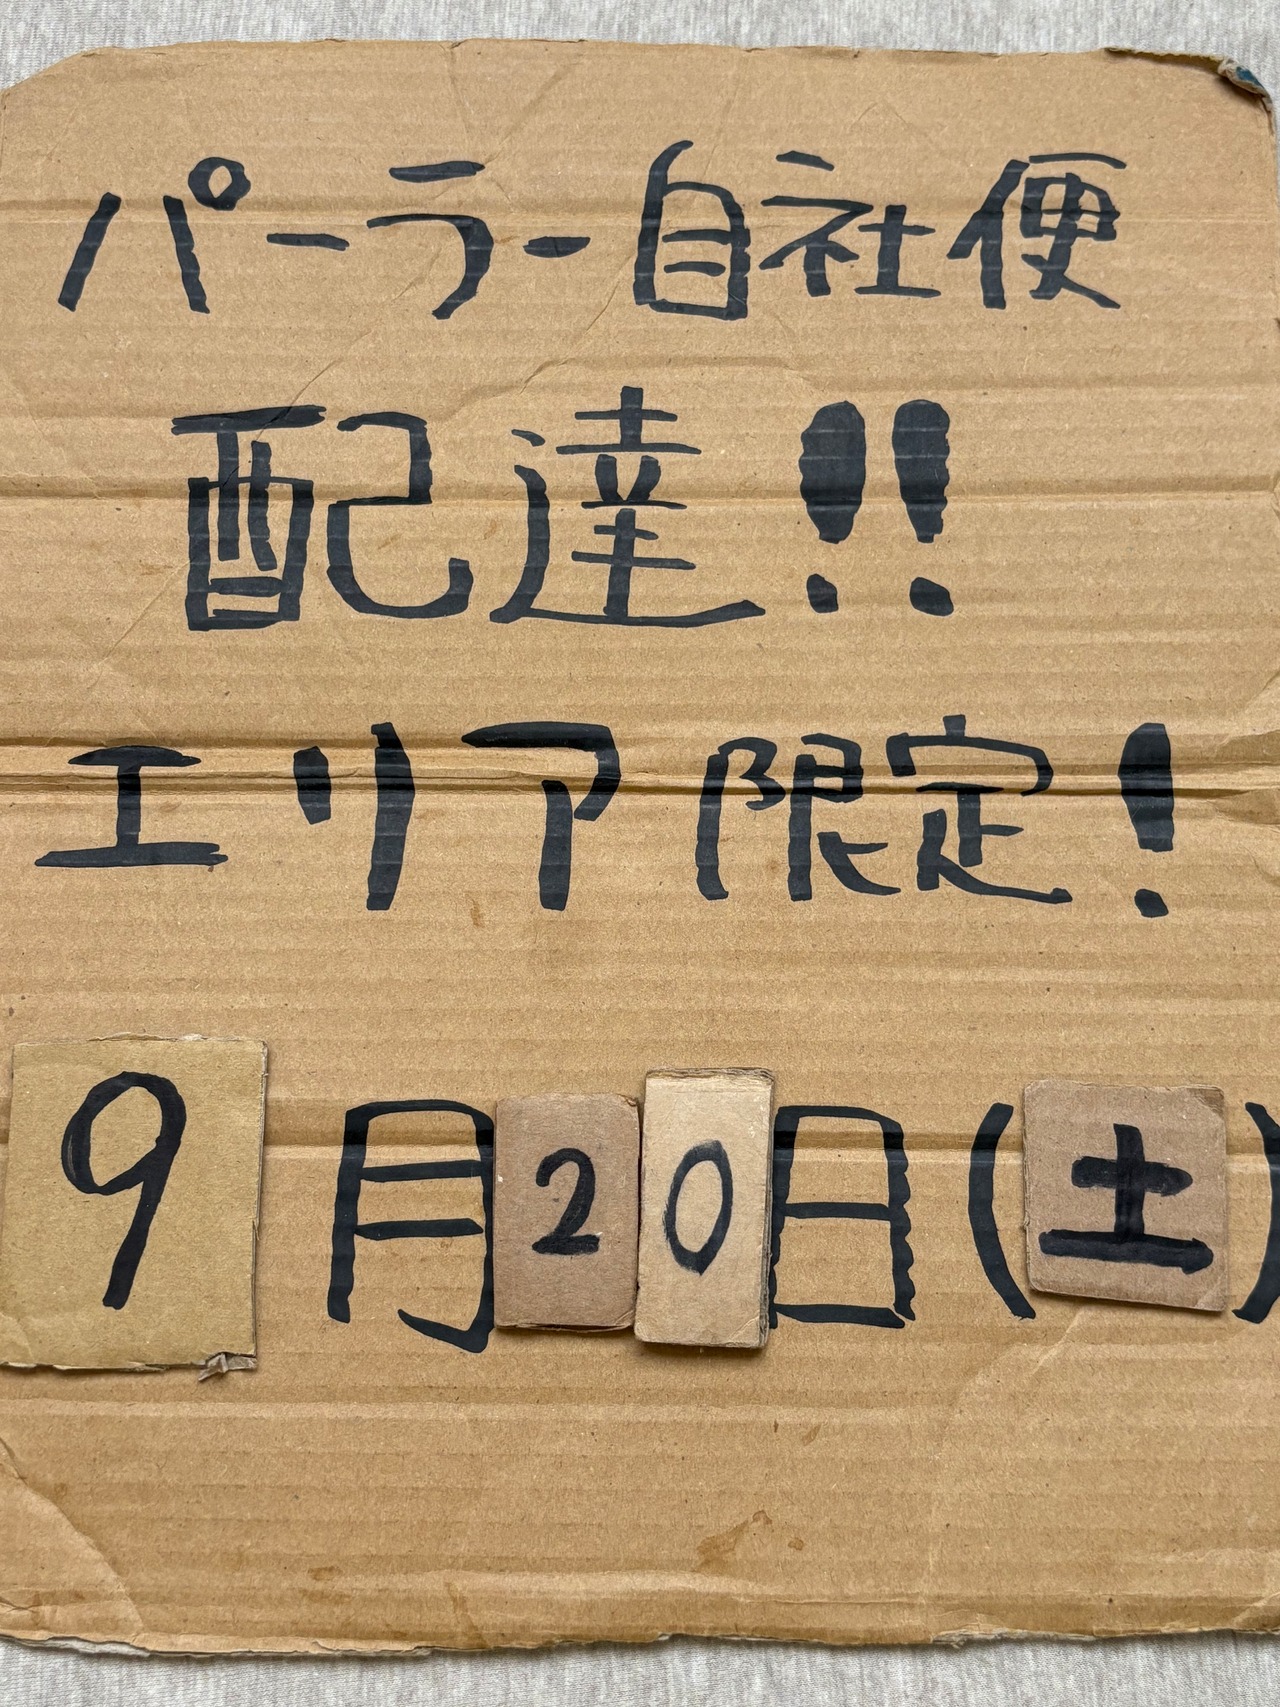 パーラー自社便
配達!!
エリア限定!
9月20日(土)